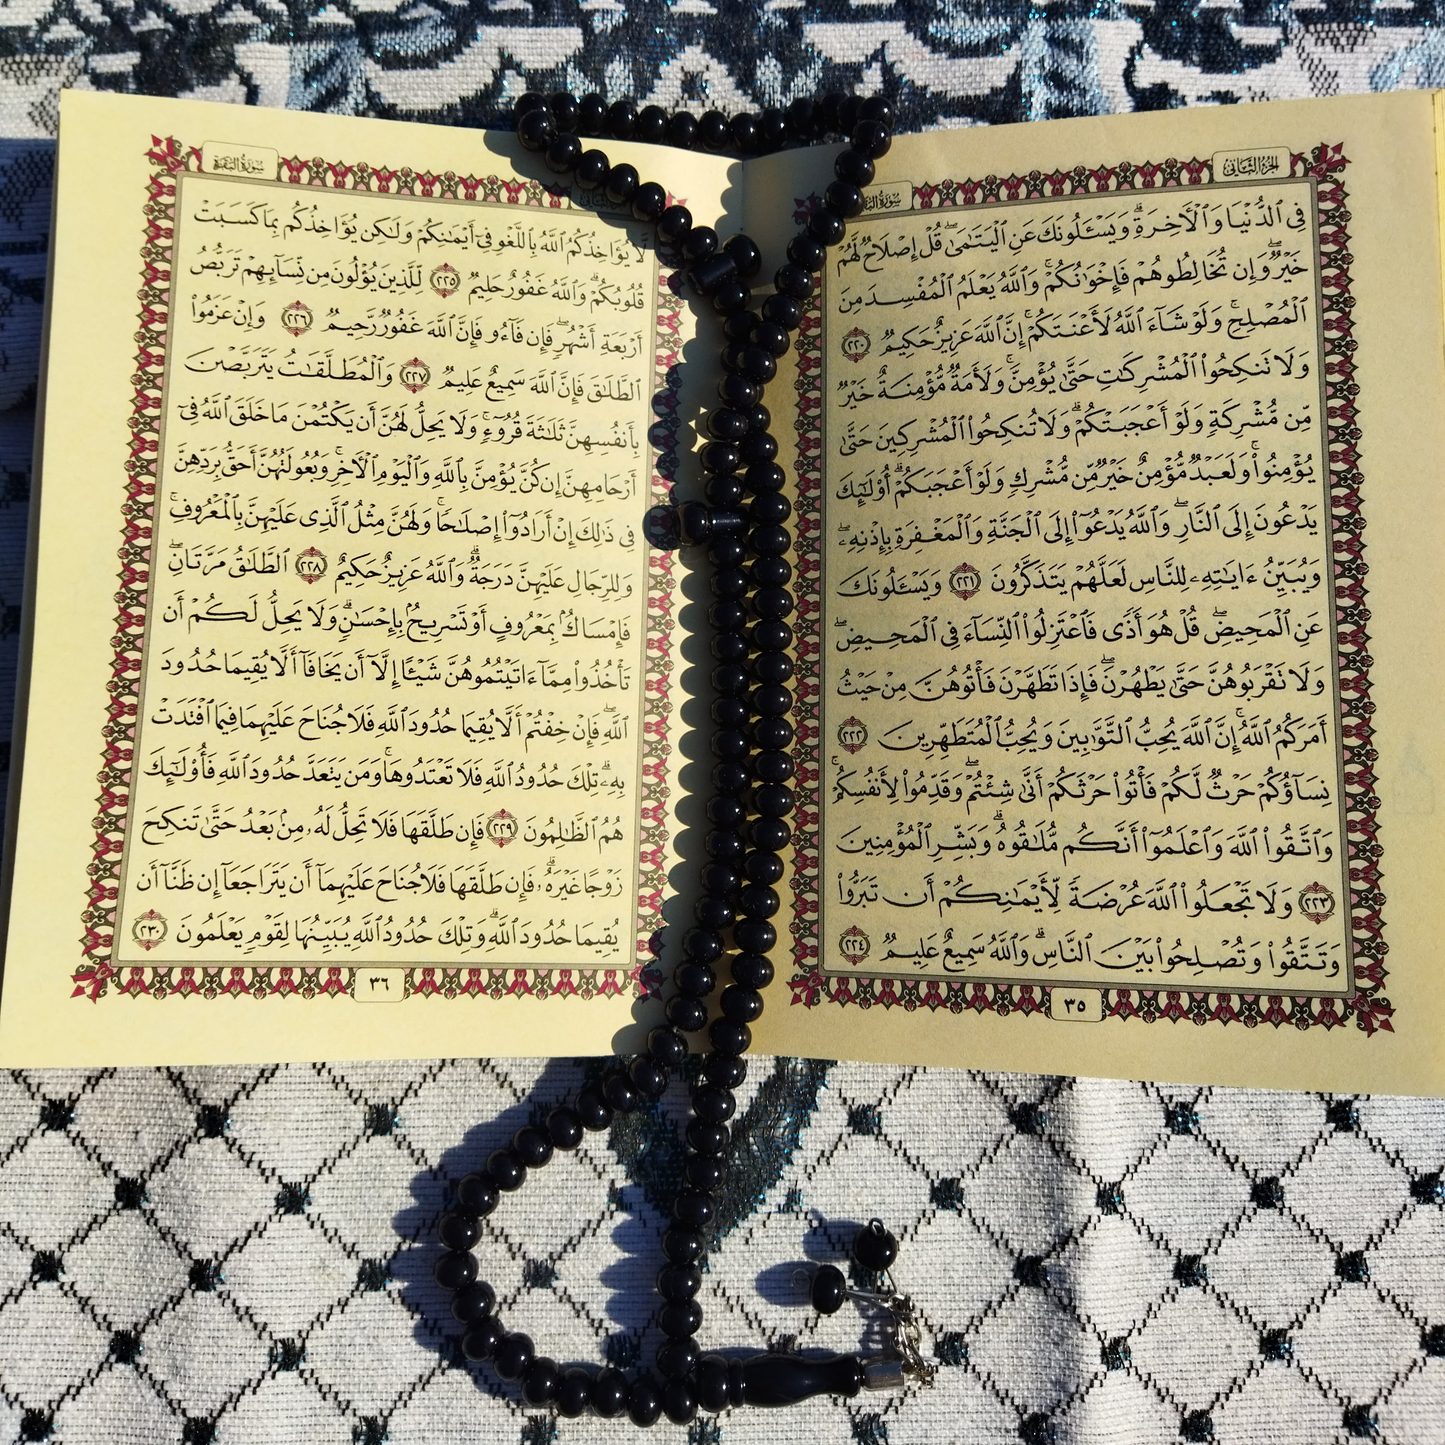 الجزء الثاني
سورة
فِي ٱلدُّنْيَا وَٱلْأَخِرَةِ ۗ وَيَسْـَٔلُونَكَ عَنِ ٱلْيَتَـٰمَىٰ ۖ قُلْ إِصْلَاحٌ لَّهُمْ
خَيْرٌ ۖ وَإِن تُخَالِطُوهُمْ فَإِخْوَٰنُكُمْ ۚ وَٱللَّهُ يَعْلَمُ ٱلْمُفْسِدَ مِنَ
ٱلْمُصْلِحِ ۚ وَلَوْ شَآءَ ٱللَّهُ لَأَعْنَتَكُمْ ۚ إِنَّ ٱللَّهَ عَزِيزٌ حَكِيمٌ ٢٢٠
وَلَا تَنكِحُوا۟ ٱلْمُشْرِكَـٰتِ حَتَّىٰ يُؤْمِنَّ ۚ وَلَأَمَةٌ مُّؤْمِنَةٌ خَيْرٌ
مِّن مُّشْرِكَةٍ وَلَوْ أَعْجَبَتْكُمْ ۗ وَلَا تُنكِحُوا۟ ٱلْمُشْرِكِينَ حَتَّىٰ
يُؤْمِنُوا۟ ۚ وَلَعَبْدٌ مُّؤْمِنٌ خَيْرٌ مِّن مُّشْرِكٍ وَلَوْ أَعْجَبَكُمْ ۗ أُو۟لَـٰٓئِكَ
يَدْعُونَ إِلَى ٱلنَّارِ ۖ وَٱللَّهُ يَدْعُوٓا۟ إِلَى ٱلْجَنَّةِ وَٱلْمَغْفِرَةِ بِإِذْنِهِۦ ۖ
وَيُبَيِّنُ ءَايَـٰتِهِۦ لِلنَّاسِ لَعَلَّهُمْ يَتَذَكَّرُونَ ٢٢١ وَيَسْـَٔلُونَكَ
عَنِ ٱلْمَحِيضِ ۖ قُلْ هُوَ أَذًى فَٱعْتَزِلُوا۟ ٱلنِّسَآءَ فِي ٱلْمَحِيضِ ۖ
وَلَا تَقْرَبُوهُنَّ حَتَّىٰ يَطْهُرْنَ ۖ فَإِذَا تَطَهَّرْنَ فَأْتُوهُنَّ مِنْ حَيْثُ
أَمَرَكُمُ ٱللَّهُ ۚ إِنَّ ٱللَّهَ يُحِبُّ ٱلتَّوَّٰبِينَ وَيُحِبُّ ٱلْمُتَطَهِّرِينَ ٢٢٢
نِسَآؤُكُمْ حَرْثٌ لَّكُمْ فَأْتُوا۟ حَرْثَكُمْ أَنَّىٰ شِئْتُمْ ۖ وَقَدِّمُوا۟ لِأَنفُسِكُمْ ۚ
وَٱتَّقُوا۟ ٱللَّهَ وَٱعْلَمُوٓا۟ أَنَّكُم مُّلَـٰقُوهُ ۗ وَبَشِّرِ ٱلْمُؤْمِنِينَ
٢٢٣ وَلَا تَجْعَلُوا۟ ٱللَّهَ عُرْضَةً لِّأَيْمَـٰنِكُمْ أَن تَبَرُّوا۟
وَتَتَّقُوا۟ وَتُصْلِحُوا۟ بَيْنَ ٱلنَّاسِ ۗ وَٱللَّهُ سَمِيعٌ عَلِيمٌ ٢٢٤
٣٥
سورة البقرة
لَّا يُؤَاخِذُكُمُ ٱللَّهُ بِٱللَّغْوِ فِيٓ أَيْمَـٰنِكُمْ وَلَـٰكِن يُؤَاخِذُكُم بِمَا كَسَبَتْ
قُلُوبُكُمْ ۗ وَٱللَّهُ غَفُورٌ حَلِيمٌ ٢٢٥ لِّلَّذِينَ يُؤْلُونَ مِن نِّسَآئِهِمْ تَرَبُّصُ
أَرْبَعَةِ أَشْهُرٍ ۖ فَإِن فَآءُو فَإِنَّ ٱللَّهَ غَفُورٌ رَّحِيمٌ ٢٢٦ وَإِنْ عَزَمُوا۟
ٱلطَّلَـٰقَ فَإِنَّ ٱللَّهَ سَمِيعٌ عَلِيمٌ ٢٢٧ وَٱلْمُطَلَّقَـٰتُ يَتَرَبَّصْنَ
بِأَنفُسِهِنَّ ثَلَـٰثَةَ قُرُوٓءٍ ۚ وَلَا يَحِلُّ لَهُنَّ أَن يَكْتُمْنَ مَا خَلَقَ ٱللَّهُ فِيٓ
أَرْحَامِهِنَّ إِن كُنَّ يُؤْمِنَّ بِٱللَّهِ وَٱلْيَوْمِ ٱلْأَخِرِ ۚ وَبُعُولَتُهُنَّ أَحَقُّ بِرَدِّهِنَّ
فِي ذَٰلِكَ إِنْ أَرَادُوٓا۟ إِصْلَـٰحًا ۚ وَلَهُنَّ مِثْلُ ٱلَّذِي عَلَيْهِنَّ بِٱلْمَعْرُوفِ ۚ
وَلِلرِّجَالِ عَلَيْهِنَّ دَرَجَةٌ ۗ وَٱللَّهُ عَزِيزٌ حَكِيمٌ ٢٢٨ ٱلطَّلَـٰقُ مَرَّتَانِ ۖ
فَإِمْسَاكٌۢ بِمَعْرُوفٍ أَوْ تَسْرِيحٌۢ بِإِحْسَـٰنٍ ۗ وَلَا يَحِلُّ لَكُمْ أَن
تَأْخُذُوا۟ مِمَّآ ءَاتَيْتُمُوهُنَّ شَيْـًٔا إِلَّآ أَن يَخَافَآ أَلَّا يُقِيمَا حُدُودَ
ٱللَّهِ ۖ فَإِنْ خِفْتُمْ أَلَّا يُقِيمَا حُدُودَ ٱللَّهِ فَلَا جُنَاحَ عَلَيْهِمَا فِيمَا ٱفْتَدَتْ
بِهِۦ ۗ تِلْكَ حُدُودُ ٱللَّهِ فَلَا تَعْتَدُوهَا ۚ وَمَن يَتَعَدَّ حُدُودَ ٱللَّهِ فَأُو۟لَـٰٓئِكَ
هُمُ ٱلظَّـٰلِمُونَ ٢٢٩ فَإِن طَلَّقَهَا فَلَا تَحِلُّ لَهُۥ مِنۢ بَعْدُ حَتَّىٰ تَنكِحَ
زَوْجًا غَيْرَهُۥ ۗ فَإِن طَلَّقَهَا فَلَا جُنَاحَ عَلَيْهِمَآ أَن يَتَرَاجَعَآ إِن ظَنَّآ أَن
يُقِيمَا حُدُودَ ٱللَّهِ ۗ وَتِلْكَ حُدُودُ ٱللَّهِ يُبَيِّنُهَا لِقَوْمٍ يَعْلَمُونَ ٢٣٠
٣٦